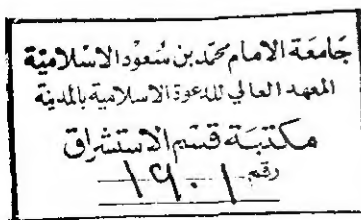 جامعة الامام محمد بن سعود الاسلامية
المعهد العالي للدعوة الاسلامية بالمدينة
مكتبة قسم الاستشراق
رقم ١٩٠١